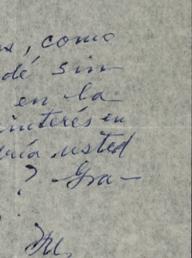 , como
dé sin
en la
interés en
ría usted
? Gra-